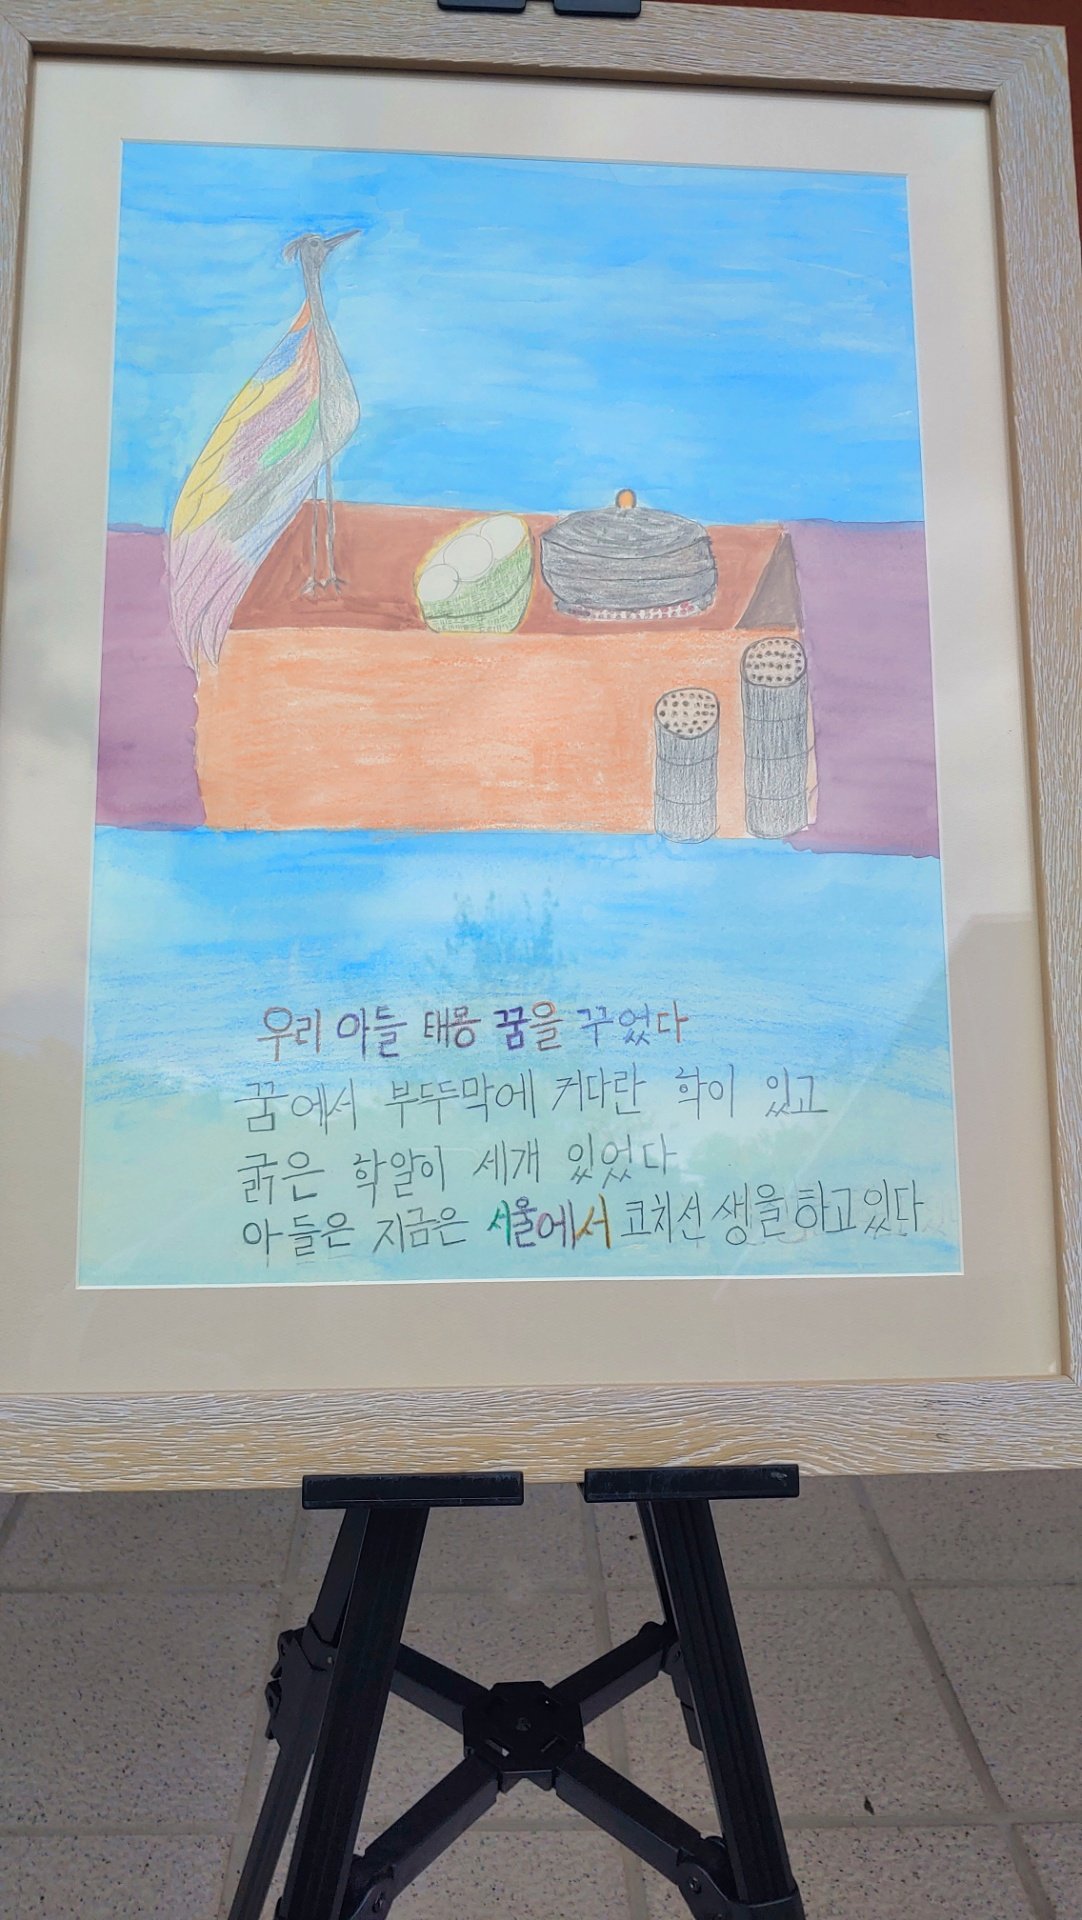 우리 아들 태몽 꿈을 꾸었다
꿈에서 부두두막에 커다란 학이 있고
굵은 학알이 세개 있었다
아들은 지금은 서울에서 코치선생을 하고있다